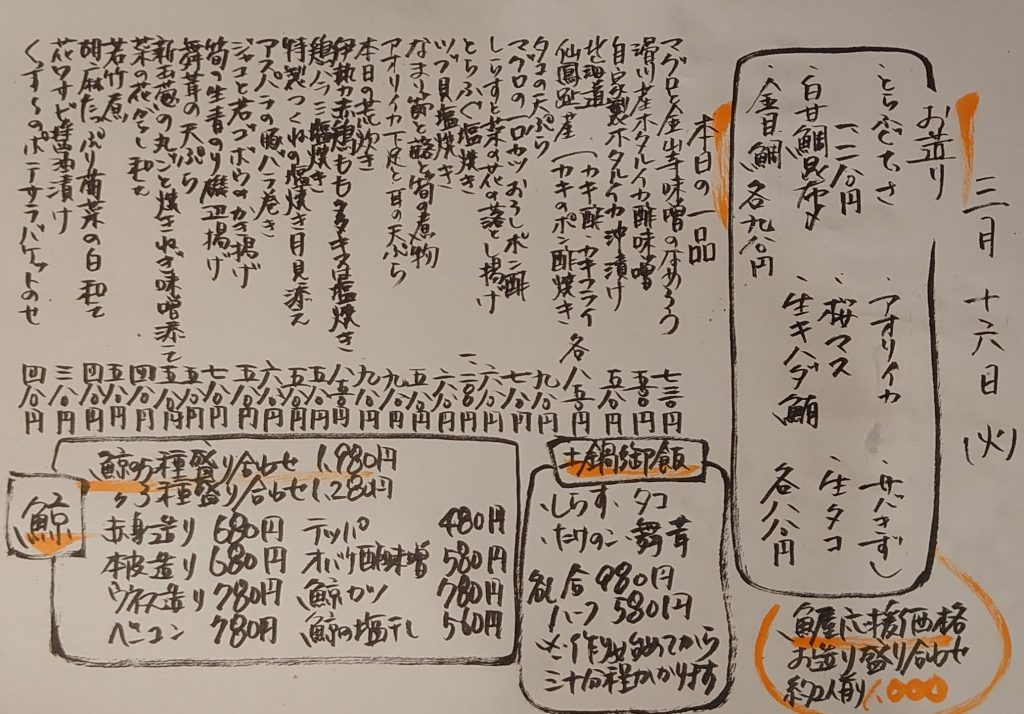 三月十六日(火)
お造り
、とらふぐてっさ
一二八〇円
、白甘鯛昆布〆
、金目鯛 各九八〇円
、アオリイカ
、桜マス
、生キハダ鮪
、サバきずし
、生タコ
各八八〇円
魚屋応援価格
お造り盛り合わせ
約2人前 1,000
本日の一品
マグロと金山寺味噌のなめろう
滑川産ホタルイカ酢味噌 五八〇円
自家製ホタルイカ沖漬け 五八〇円
北海道仙鳳趾産
カキ酢 カキフライ
カキのポン酢焼き 各八八〇円
タコの天ぷら 九八〇円
マグロの一口カツおろしポン酢 七八〇円
しらすと菜の花の落とし揚げ 六八〇円
とらふぐ塩焼き 一二八〇円
ツブ貝塩焼き 六八〇円
なまり節と蕗と筍の煮物 五八〇円
アオリイカ下足と耳の天ぷら 九八〇円
本日の荒炊き 九八〇円
伊勢赤鶏ももタタキ又は塩焼き 八八〇円
鶏ハラミ塩焼き 五八〇円
特製つくねの塩焼き月見添え 五八〇円
アスパラの豚バラ巻き 六八〇円
ジャコと若ゴボウのかき揚げ 六八〇円
筍の生青のり磯辺揚げ 七八〇円
舞茸の天ぷら 五八〇円
新玉葱の丸ごと焼きねぎ味噌添え 五八〇円
菜の花からし和え 四八〇円
若竹煮 五八〇円
胡麻たっぷり菊菜の白和え 四八〇円
花ワサビ醤油漬け 三八〇円
のポテサラバケットのせ 四八〇円
土鍋御飯
、しらす、タコ
、たけのこ 舞茸
各一合 980円
ハーフ 580円
※作り始めてから
三十分程かかります
鯨
鯨の5種盛り合わせ 1,980円
〃3種盛り合わせ 1,280円
赤身造り 680円 テッパ 480円
本皮造り 680円 オバケ酢味噌 580円
ウネス造り 780円 鯨カツ 780円
ベーコン 780円 鯨の塩干し 560円